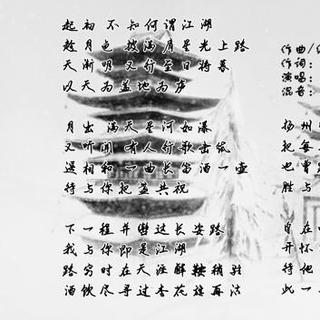 起初 不知何谓江湖
趁月色 披满肩星光上路
天渐明 又行至日将暮
以天为盖地为庐
月出 满天星河如瀑
又听闻 有人行歌出
遥相和 一曲长笛酒一壶
待与你把盏共祝
下一程并辔这长途
我与你即是江湖
路穷时在天涯解鞍稍驻
酒饮尽寻过杏花再沽
作曲/
作词:
演唱:
混音:
扬州
把每
也曾
胜与
自在
开怀
待他
此一